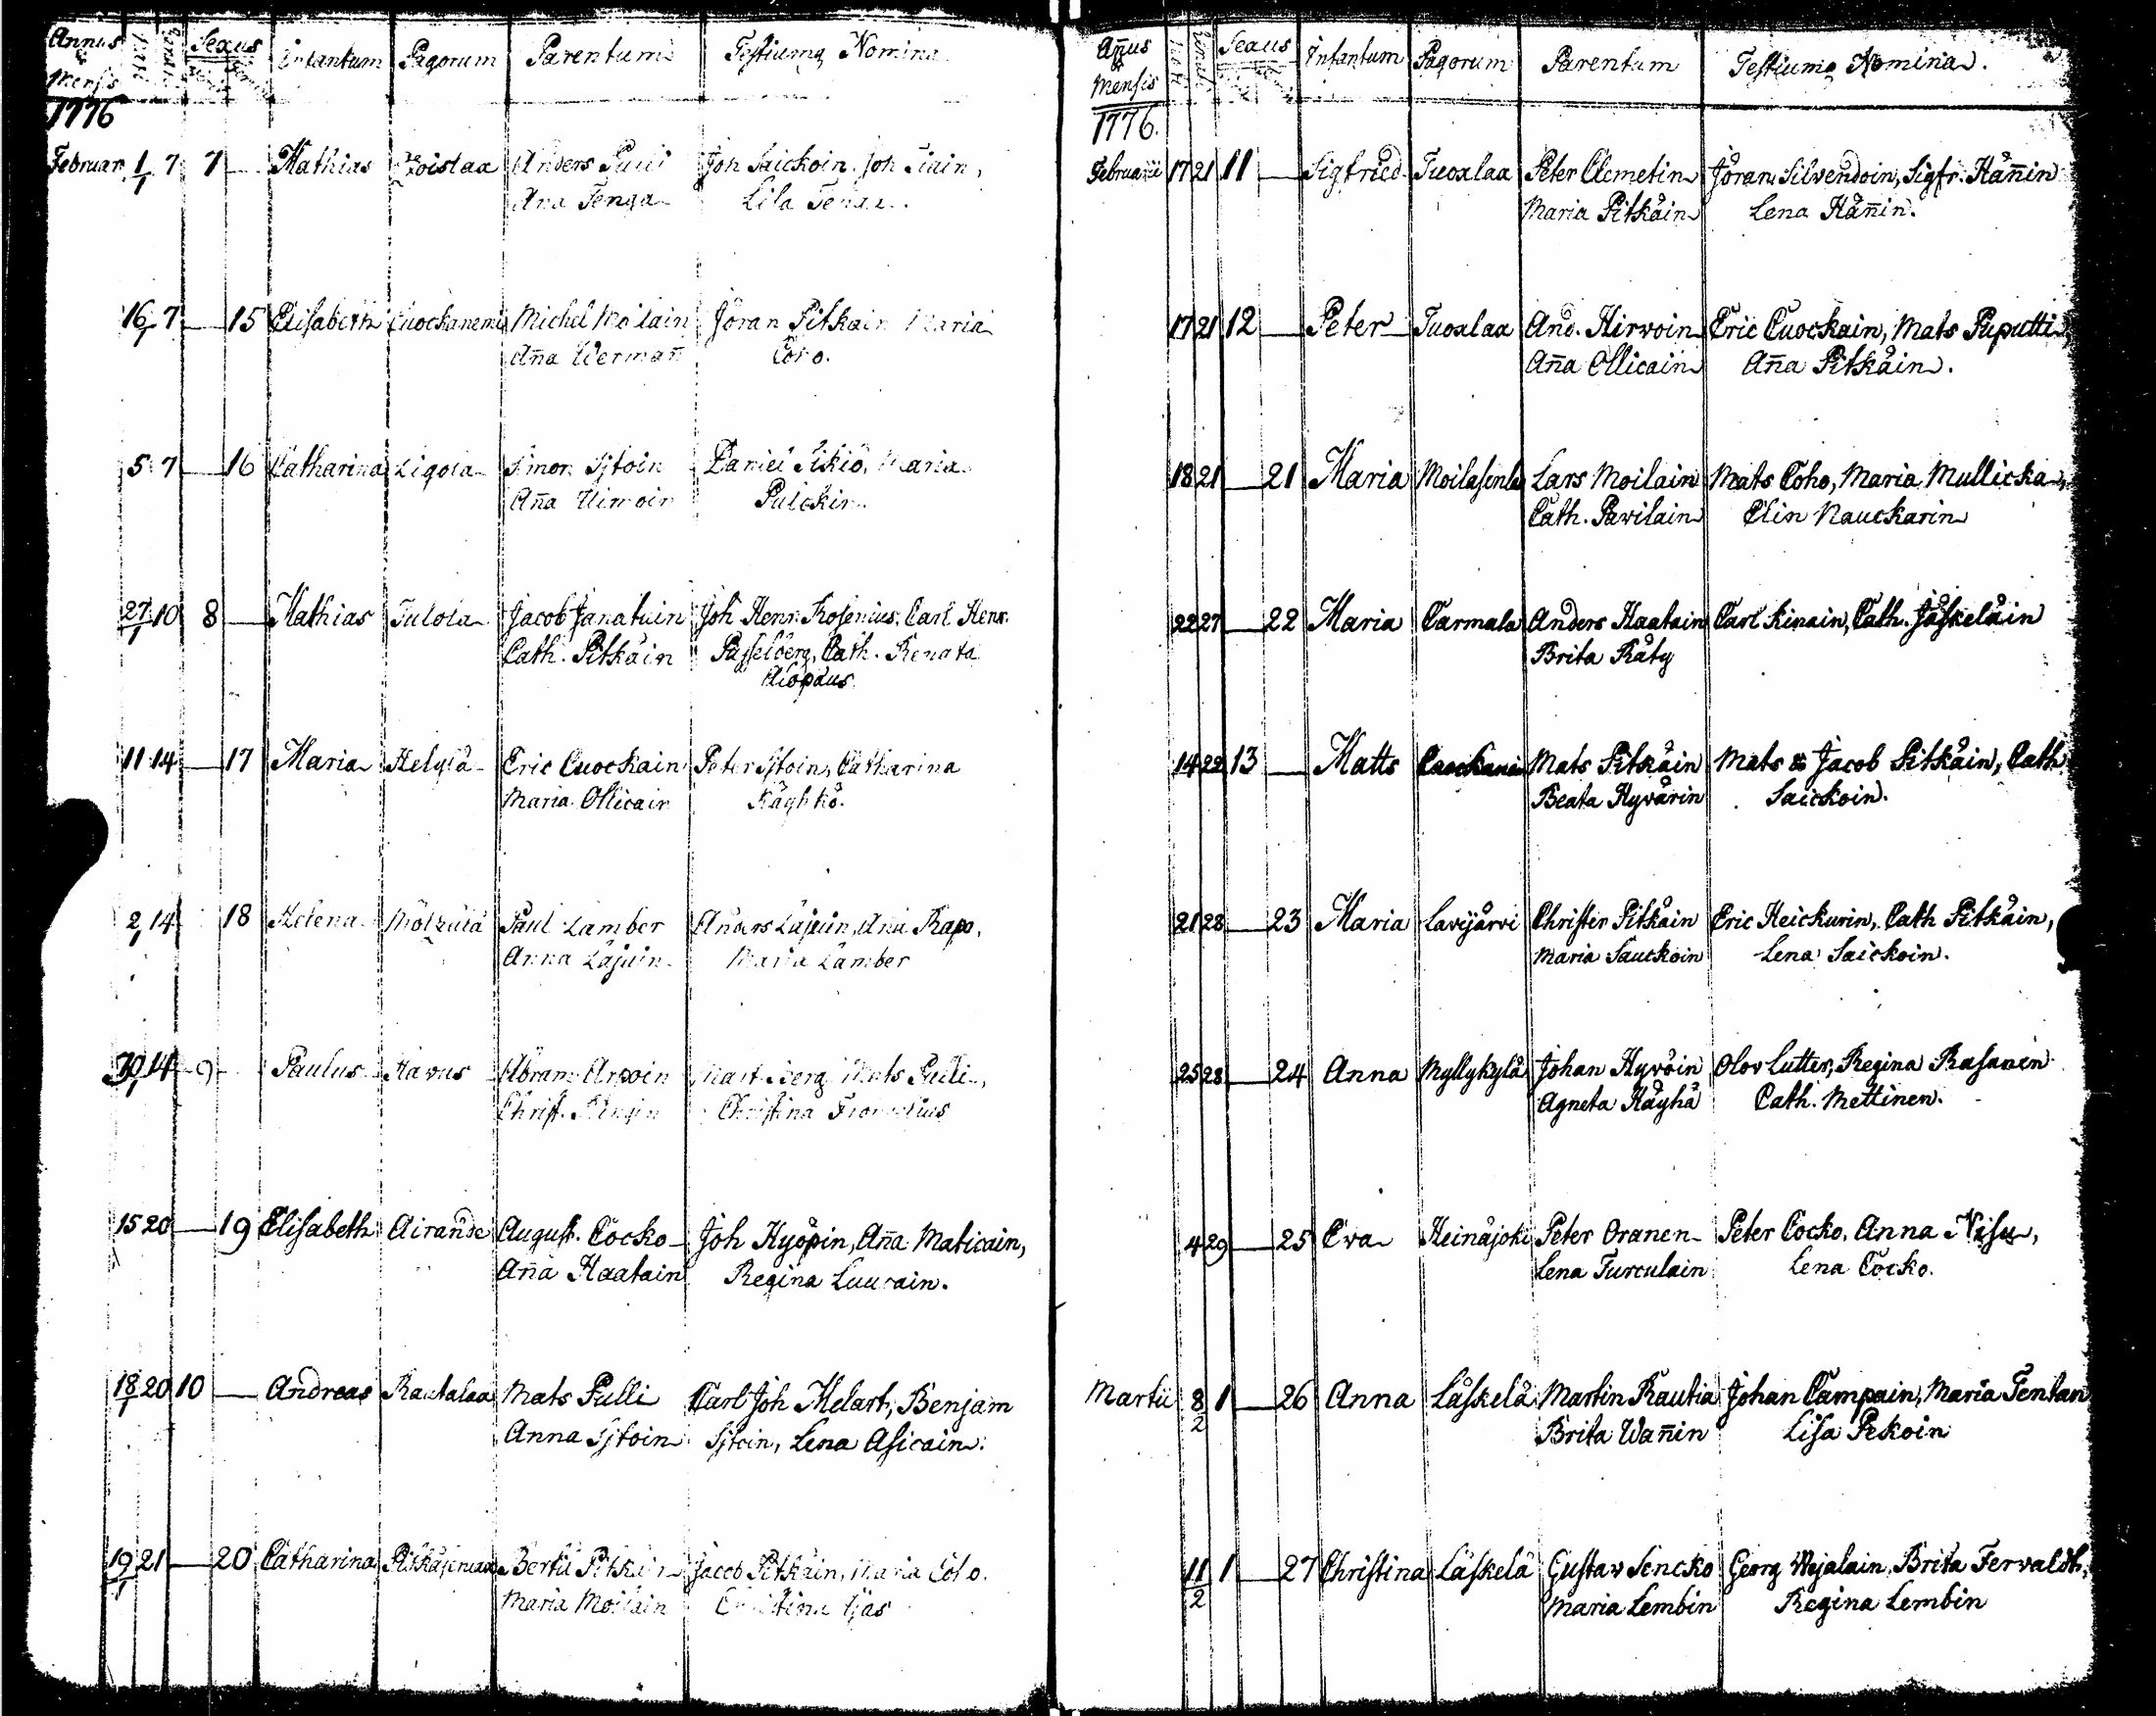 Annus & Mensis Sexus Infantum Pagorum Parentum Testiumq Nomina
1776
Februar. 1/1 7 7 — Mathias Anders Pulli Joh Saickoin. Joh Tiain,
Ana Tenga Lisa
16/1 7 — 15 Elisabeth Cuockaniemi Michel Moilain Jöran Pitkäin Maria
Aña Wermañ Coho.
5 7 — 16 Catharina Ligola Simon Sjtoin Daniel Sikiö, Maria
Aña Hirvoin Pulckin.
27/1 10 8 — Mathias Tulola Jacob Janatuin Joh Henr. Rosenius. Carl Henr.
Cath. Pitkäin Passelberg, Cath. Renata
Alopaus
11 14 — 17 Maria Helylä Eric Cuockain Peter Sjtoin, Catharina
Maria Ollicain Käyhkö.
2/1 14 18 Helena Paul Lamber Anders Läjuin, Aña Rapo,
Anna Läjuin Maria Lamber
30/1 14 9 — Paulus Havus Abram Arvoin Mart. Berg Mats Pulli,
Christ. Christina
15/1 20 — 19 Elisabeth Airande August. Cocko Joh Hyöpin, Aña Maticain,
Aña Haatain Regina Luucain.
18/1 20 10 — Andreas Rautalaa Mats Pulli Carl Joh Melart, Benjam
Anna Sjtoin Sjtoin, Lena Asicain.
19/1 21 — 20 Catharina Pitkäjenuaa Bertil Pitkäin Jacob Pitkäin, Maria Coho.
Maria Moilain Christina Ijäs
Añus & Mensis Sexus Infantum Pagorum Parentum Testiumq Nomina.
1776.
Februarii 17 21 11 — Sigfried Tuoxlaa Peter Clemetin Jöran Silvendoin, Sigfr. Häñin
Maria Pitkäin Lena Häñin.
17 21 12 — Peter Tuoxlaa And. Hirvoin Eric Cuockain, Mats Puputti
Aña Ollicain Aña Pitkäin.
18 21 — 21 Maria Moilasenla Lars Moilain Mats Coho, Maria Mullicka,
Cath. Pavilain Elin Nauckarin
22 27 — 22 Maria Carmala Anders Haatain Carl Kinain, Cath. Jäskeläin
Brita Räty
14 22 13 — Matts Mats Pitkäin Mats & Jacob Pitkäin, Cath
Beata Hyvärin Saickoin.
21 28 — 23 Maria Lavijärvi Christer Pitkäin Eric Heickurin, Cath Pitkäin,
Maria Sauckoin Lena Saickoin.
25 28 — 24 Anna Myllykylä Johan Hyvöin Olov Lutter, Regina Rasanen
Agneta Käyhä Cath. Mettinen.
4 29 — 25 Eva Heinäjoki Peter Oranen Peter Cocko. Anna Nisu,
Lena Turculain Lena Cocko.
Martii 8/2 1 — 26 Anna Läskelä Martin Rautia Johan Campain, Maria Tentan
Brita Wañin Lisa Pekoin
11/2 1 — 27 Christina Läskelä Gustav Sencko Georg Wejalain, Brita Fervaldt,
Maria Lembin Regina Lembin